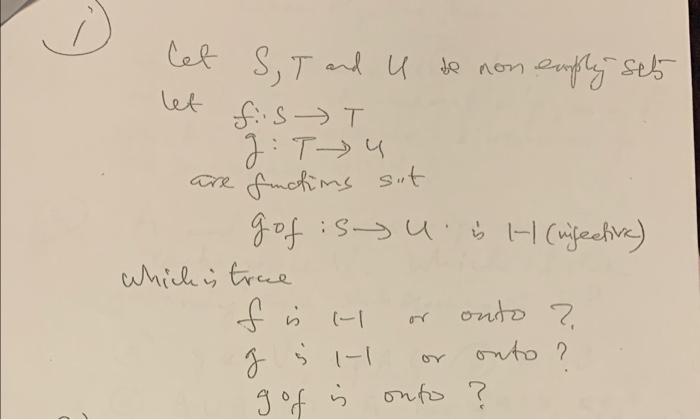 1)
Let S, T and U be non empty sets
let f: S → T
g: T → U
are functions s.t
gof : S → U. is 1-1 (injective)
which is true
f is 1-1 or onto ?
g is 1-1 or onto ?
gof is onto ?